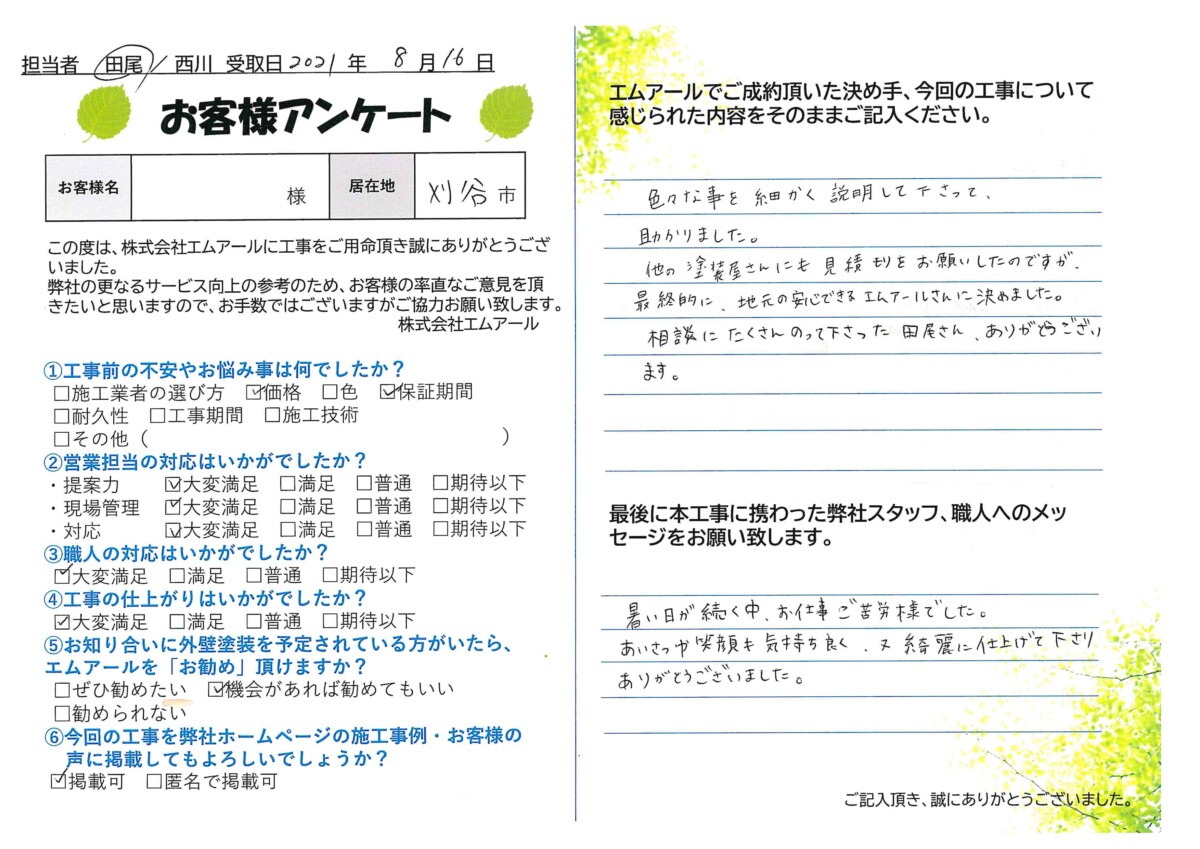 担当者 田尾/西川 受取日2021年 8月16日
お客様アンケート
お客様名 様 居在地 刈谷市
この度は、株式会社エムアールに工事をご用命頂き誠にありがとうござ
いました。
弊社の更なるサービス向上の参考のため、お客様の率直なご意見を頂
きたいと思いますので、お手数ではございますがご協力お願い致します。
株式会社エムアール
①工事前の不安やお悩み事は何でしたか？
□施工業者の選び方 ☑価格 □色 ☑保証期間
□耐久性 □工事期間 □施工技術
□その他（ ）
②営業担当の対応はいかがでしたか？
・提案力 ☑大変満足 □満足 □普通 □期待以下
・現場管理 ☑大変満足 □満足 □普通 □期待以下
・対応 ☑大変満足 □満足 □普通 □期待以下
③職人の対応はいかがでしたか？
☑大変満足 □満足 □普通 □期待以下
④工事の仕上がりはいかがでしたか？
☑大変満足 □満足 □普通 □期待以下
⑤お知り合いに外壁塗装を予定されている方がいたら、
エムアールを「お勧め」頂けますか？
□ぜひ勧めたい ☑機会があれば勧めてもいい
□勧められない
⑥今回の工事を弊社ホームページの施工事例・お客様の
声に掲載してもよろしいでしょうか？
☑掲載可 □匿名で掲載可
エムアールでご成約頂いた決め手、今回の工事について
感じられた内容をそのままご記入ください。
色々な事を細かく説明して下さって、
助かりました。
他の塗装屋さんにも見積もりをお願いしたのですが、
最終的に、地元の安心できるエムアールさんに決めました。
相談にたくさんのって下さった田尾さん、ありがとうござい
ます。
最後に本工事に携わった弊社スタッフ、職人へのメッ
セージをお願い致します。
暑い日が続く中、お仕事ご苦労様でした。
あいさつや笑顔も気持ち良く、又綺麗に仕上げて下さり
ありがとうございました。
ご記入頂き、誠にありがとうございました。